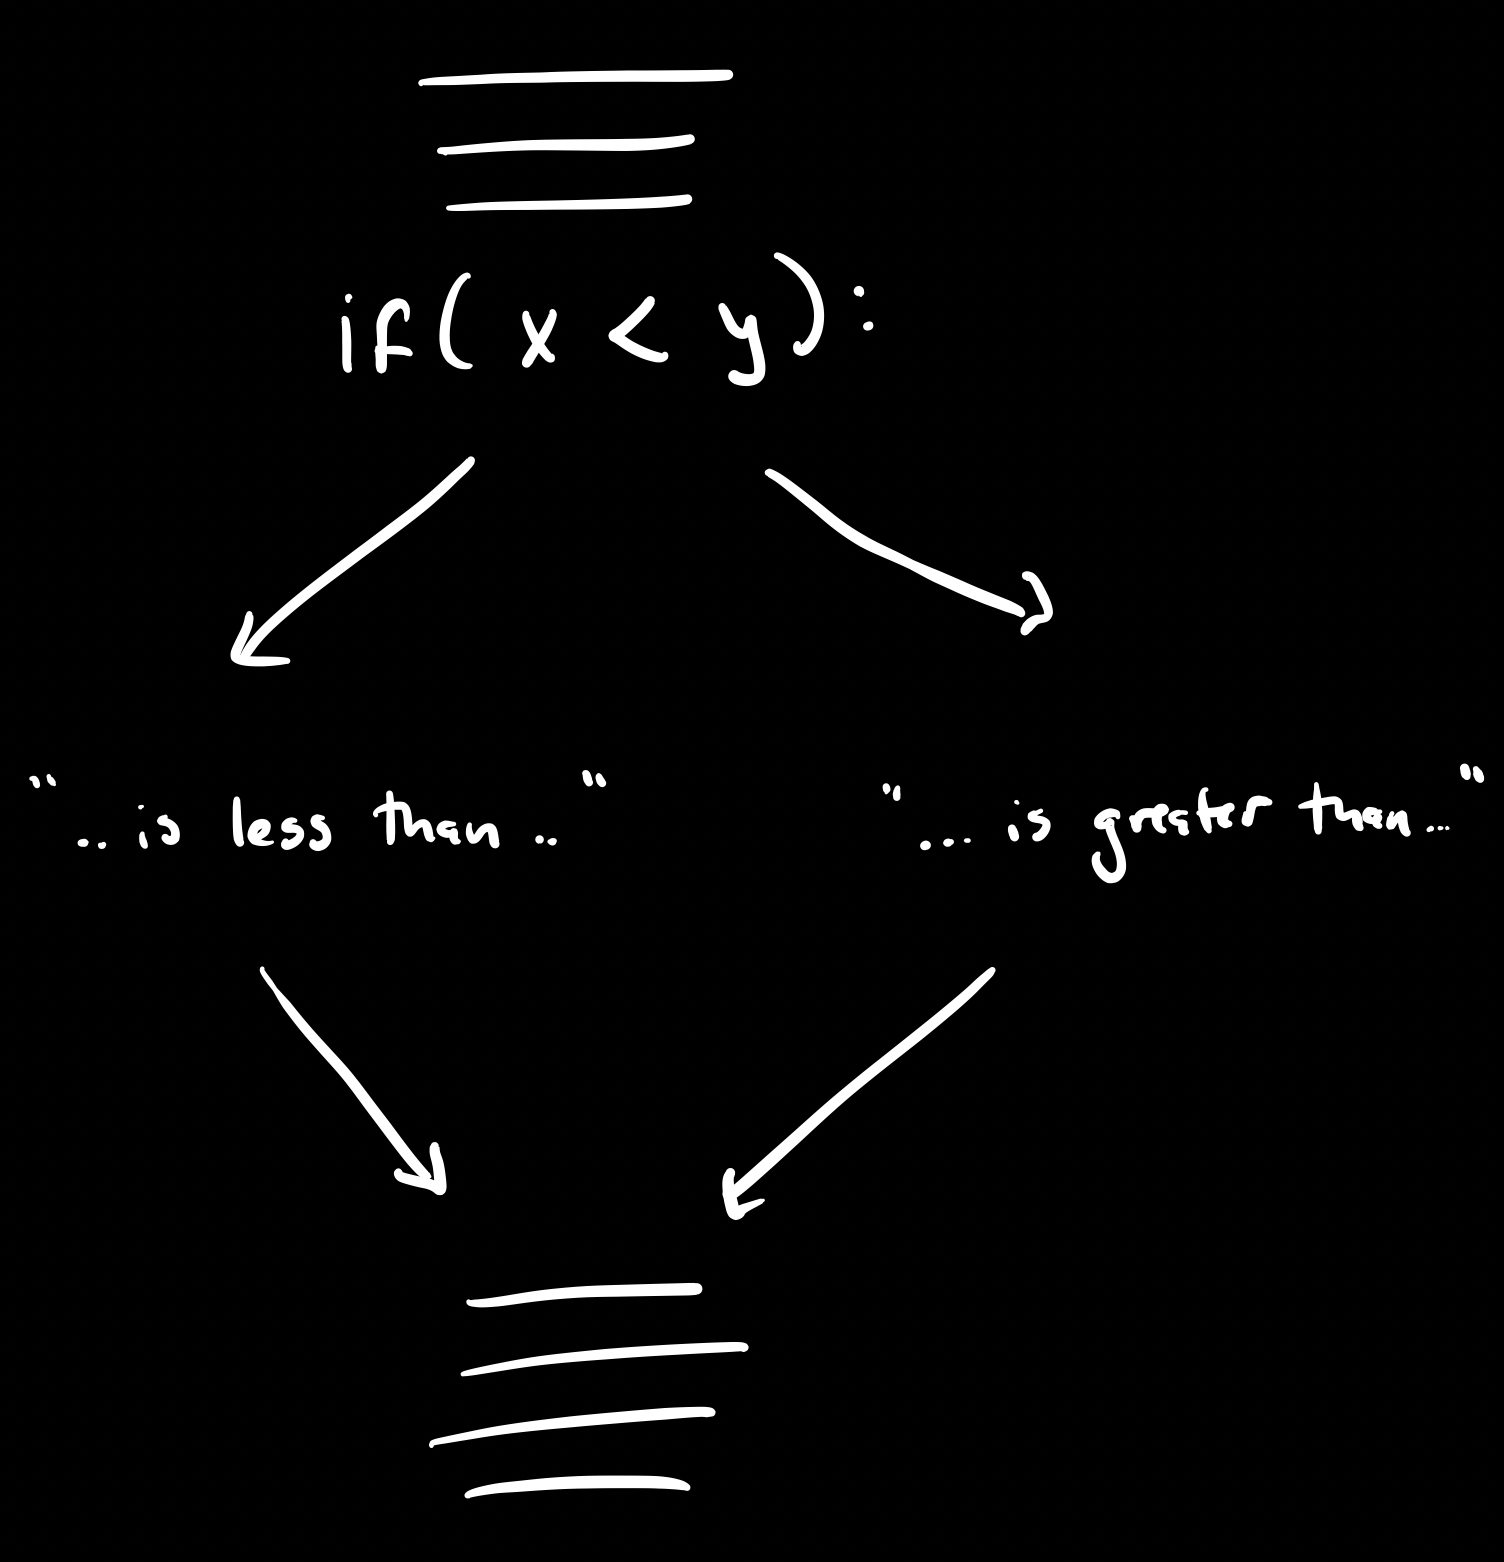 if( x < y):
".. is less than .."
".... is greater than ..."